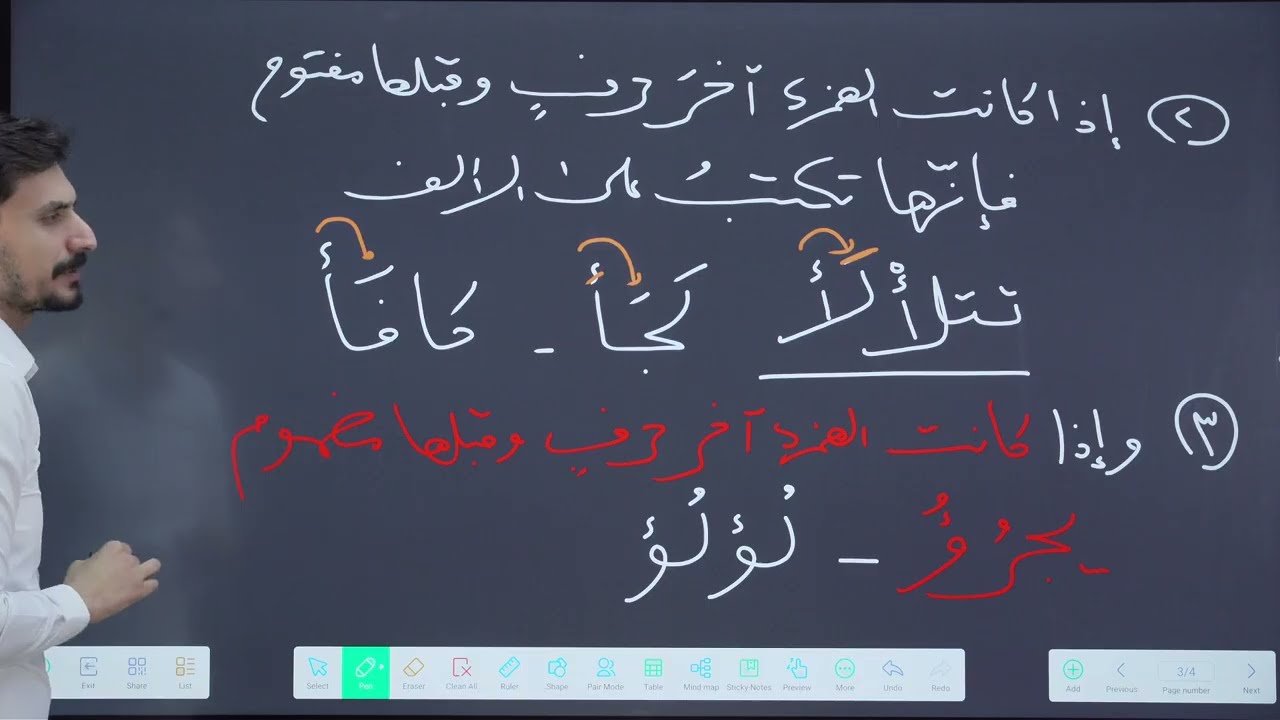 ٢ إذا كانت الهمزة آخرَ حرفٍ وقبلها مفتوح
فإنّها تكتبُ على الالف
تتلأْلَأ لَجَأ - كافَأ
٣ وإذا كانت الهمزة آخر حرفٍ وقبلها مضموم
- يجرُؤُ - لُؤلُؤ
Exit Share List Select Pen Eraser Clean All Ruler Shape Pair Mode Table Mind map Sticky Notes Preview More Undo Redo Add Previous 3/4 Page number Next